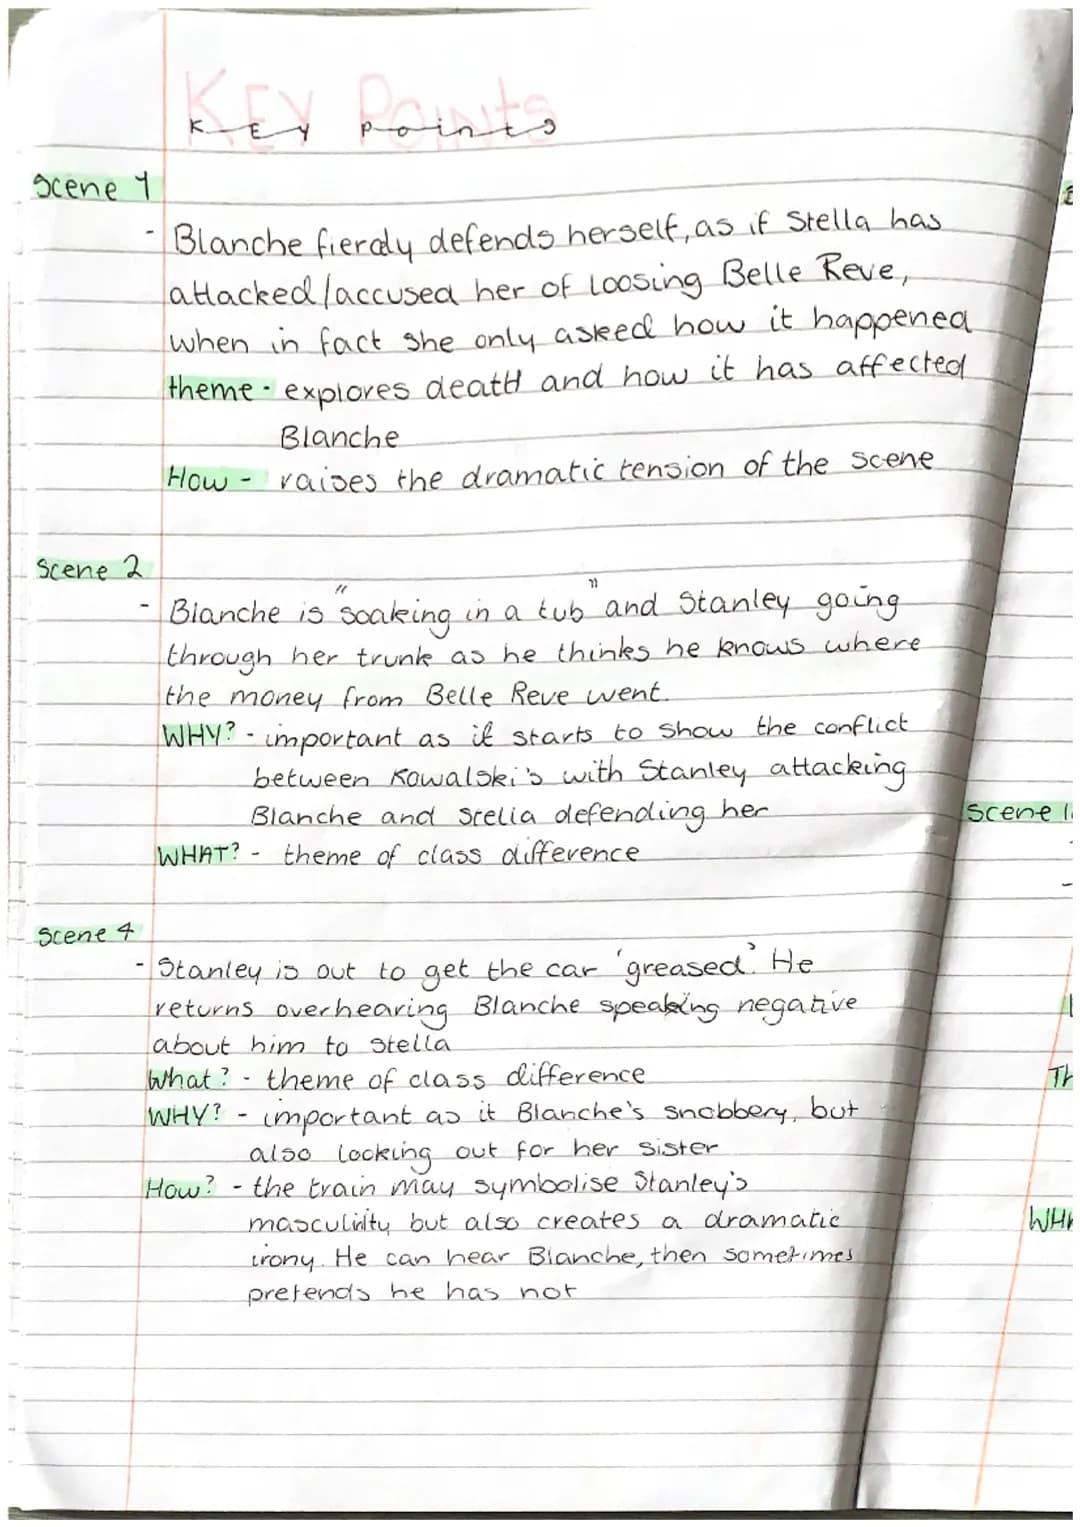 KEY Points
KEY points
Scene 1
- Blanche fiercly defends herself, as if Stella has
attacked/accused her of loosing Belle Reve,
when in fact she only asked how it happened
theme - explores death and how it has affected
Blanche
How - raises the dramatic tension of the scene
Scene 2
- Blanche is "soaking in a tub" and Stanley going
through her trunk as he thinks he knows where
the money from Belle Reve went.
WHY? - important as it starts to show the conflict
between Kowalski's with Stanley attacking
Blanche and Stella defending her
WHAT? - theme of class difference
Scene 4
- Stanley is out to get the car 'greased'. He
returns overhearing Blanche speaking negative
about him to Stella
What? - theme of class difference
WHY? - important as it Blanche's snobbery, but
also looking out for her sister
How? - the train may symbolise Stanley's
masculinity but also creates a dramatic
irony. He can hear Blanche, then sometimes
pretends he has not
Scene 1
Th
WH